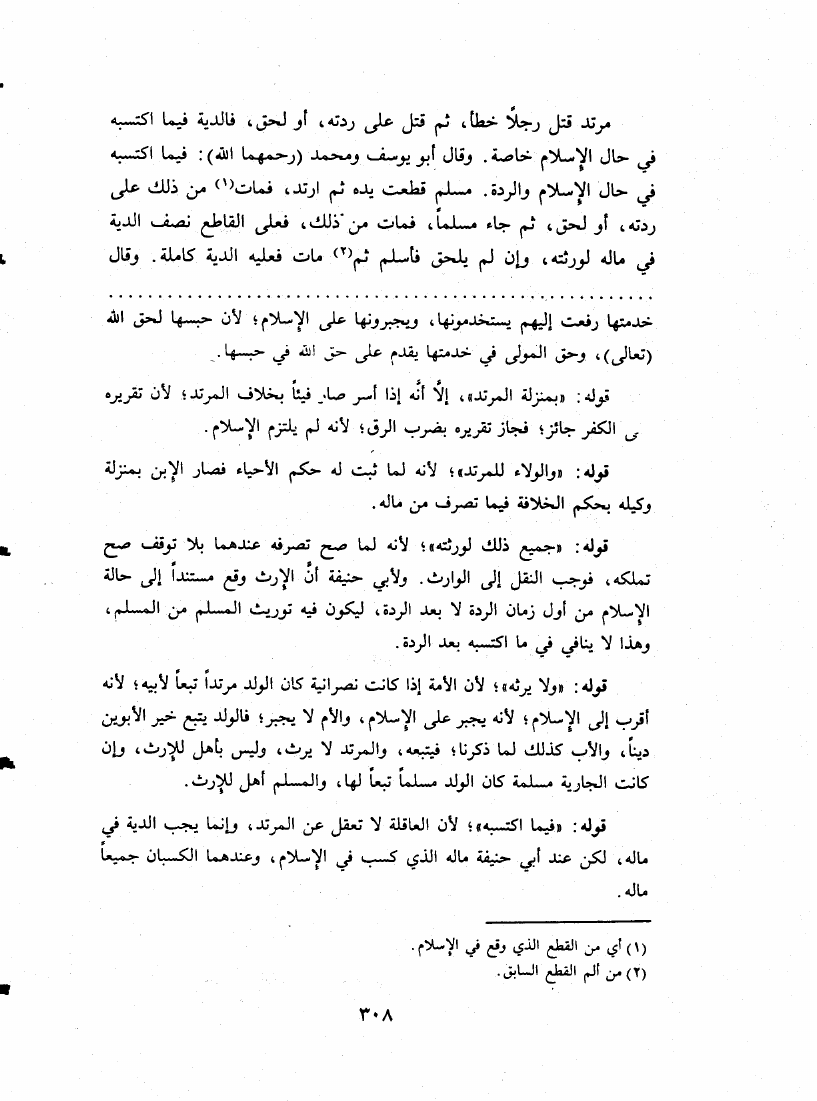 مرتد قتل رجلًا خطأ، ثم قتل على ردته، أو لحق، فالدية فيما اكتسبه
في حال الإسلام خاصة. وقال أبو يوسف ومحمد (رحمهما الله): فيما اكتسبه
في حال الإسلام والردة. مسلم قطعت يده ثم ارتد، فمات(١) من ذلك على
ردته، أو لحق، ثم جاء مسلماً، فمات من ذلك، فعلى القاطع نصف الدية
في ماله لورثته، وإن لم يلحق فأسلم ثم(٢) مات فعليه الدية كاملة. وقال
خدمتها رفعت إليهم يستخدمونها، ويجبرونها على الإسلام؛ لأن حبسها لحق الله
(تعالى)، وحق المولى في خدمتها يقدم على حق الله في حبسها.
قوله: «بمنزلة المرتد»، إلاَّ أنَّه إذا أسر صار فيئاً بخلاف المرتد؛ لأن تقريره
ى الكفر جائز؛ فجاز تقريره بضرب الرق؛ لأنه لم يلتزم الإسلام.
قوله: «والولاء للمرتد»؛ لأنه لما ثبت له حكم الأحياء فصار الإبن بمنزلة
وكيله بحكم الخلافة فيما تصرف من ماله.
قوله: «جميع ذلك لورثته»؛ لأنه لما صح تصرفه عندهما بلا توقف صح
تملكه، فوجب النقل إلى الوارث. ولأبي حنيفة أنَّ الإرث وقع مستنداً إلى حالة
الإسلام من أول زمان الردة لا بعد الردة، ليكون فيه توريث المسلم من المسلم،
وهذا لا ينافي في ما اكتسبه بعد الردة.
قوله: «ولا يرثه»؛ لأن الأمة إذا كانت نصرانية كان الولد مرتداً تبعاً لأبيه؛ لأنه
أقرب إلى الإسلام؛ لأنه يجبر على الإسلام، والأم لا يجبر؛ فالولد يتبع خير الأبوين
ديناً، والأب كذلك لما ذكرنا؛ فيتبعه، والمرتد لا يرث، وليس بأهل للإرث، وإن
كانت الجارية مسلمة كان الولد مسلماً تبعاً لها، والمسلم أهل للإرث.
قوله: «فيما اكتسبه»؛ لأن العاقلة لا تعقل عن المرتد، وإنما يجب الدية في
ماله، لكن عند أبي حنيفة ماله الذي كسب في الإسلام، وعندهما الكسبان جميعاً
ماله.
(١) أي من القطع الذي وقع في الإسلام.
(٢) من ألم القطع السابق.
٣٠٨